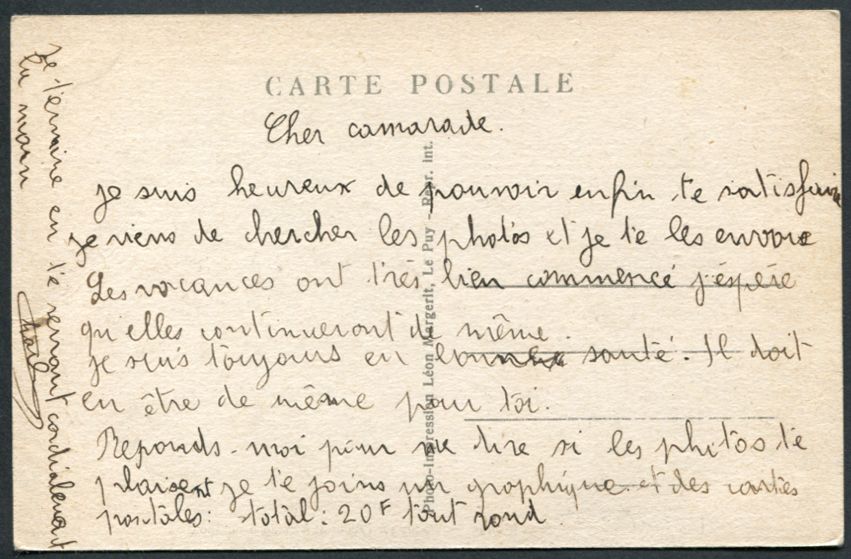 CARTE POSTALE
Cher camarade.
je suis heureux de pouvoir enfin te satisfaire
je viens de chercher les photos et je te les envoie
Les vacances ont très bien commencé j'éspère
qu'elles continueront de même.
je suis toujours en bonne santé. Il doit
en être de même pour toi.
Reponds-moi pour me dire si les photos te
plaisent je te joins un graphique et des cartes
postales: total: 20F tout rond
je termine en te serrant cordialement
la main
Photo-Impression Léon Margerit, Le Puy - Repr. int.